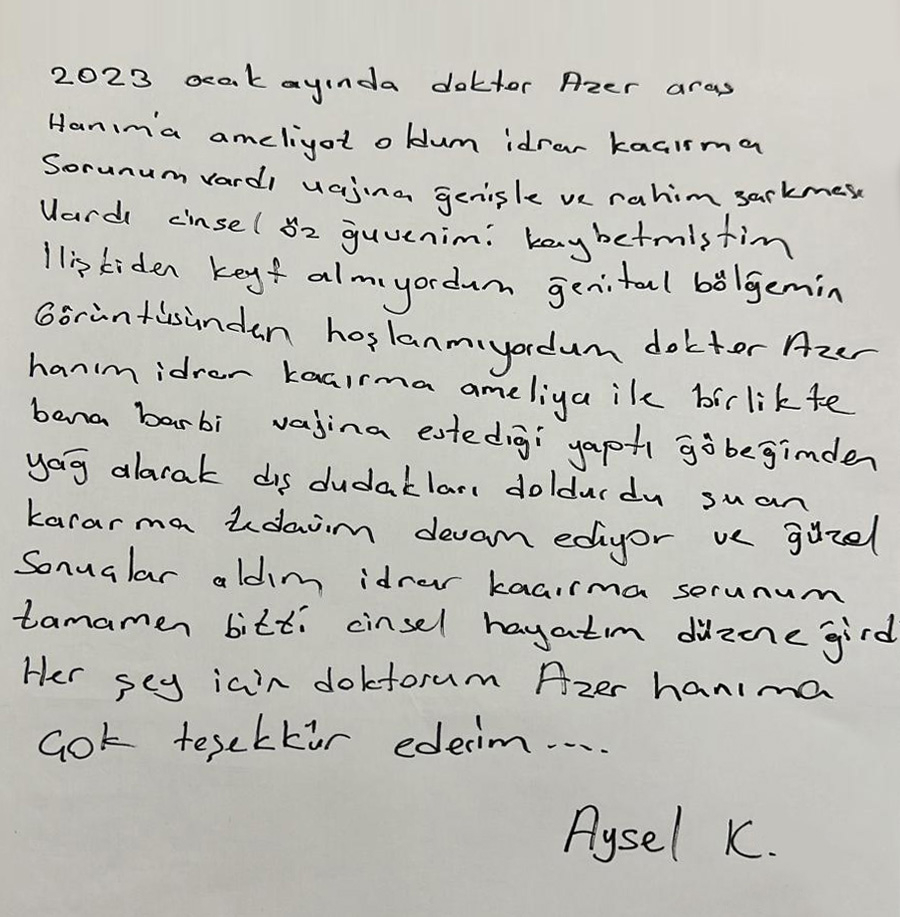 2023 ocak ayında doktor Azer aras
Hanım'a ameliyat oldum idrar kaçırma
Sorunum vardı vajına ğenişle ve rahim sarkması
Vardı cinsel öz ğuvenimi kaybetmiştim
Ilişkiden keyf almıyordum ğenital bölğemin
Görüntüsünden hoşlanmıyordum doktor Azer
hanım idrar kaçırma ameliya ile birlikte
bana barbi vajina estediği yaptı ğöbeğimden
yağ alarak dış dudakları doldurdu şuan
kararma tedavim devam ediyor ve ğüzel
Sonuçlar aldım idrar kaçırma sorunum
tamamen bitti cinsel hayatım düzene ğird
Her şey için doktorum Azer hanıma
Çok teşekkür ederim....
Aysel K.